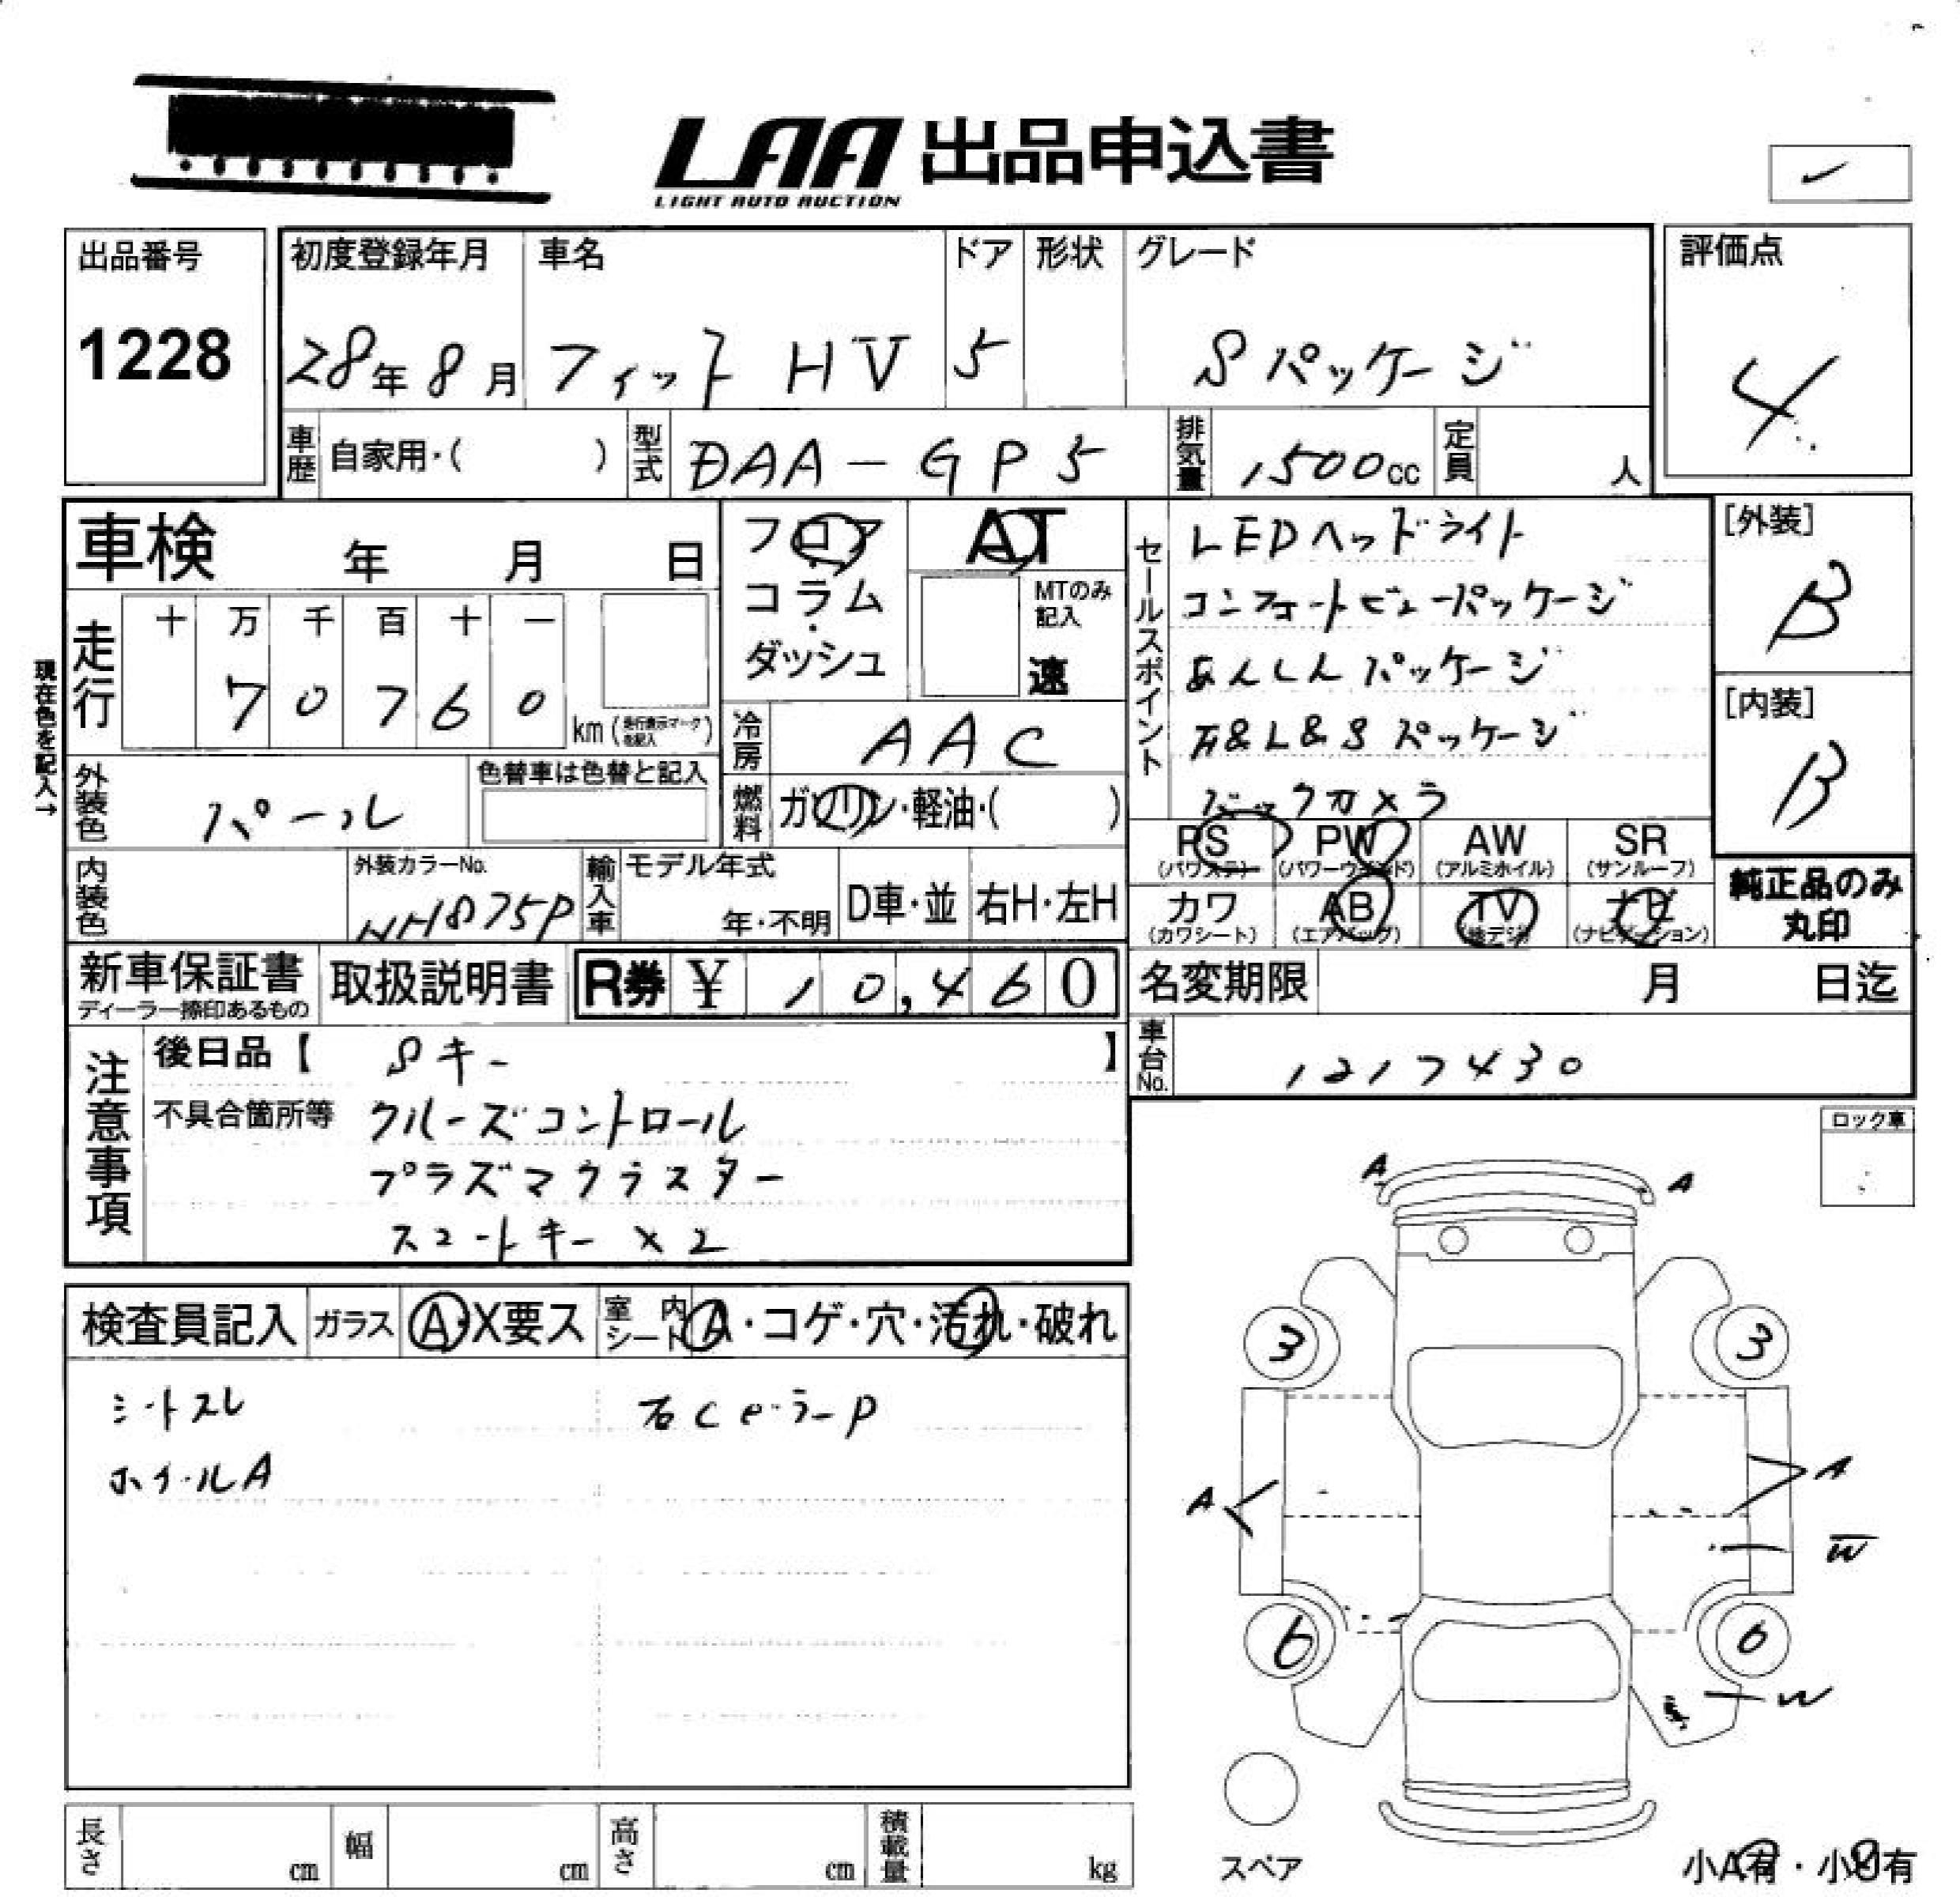 LAA 出品申込書
LIGHT AUTO AUCTION
出品番号
1228
初度登録年月
28年8月
車名
フィット HV
ドア
5
形状
グレード
Sパッケージ
評価点
4
車歴 自家用・( )
型式 DAA-GP5
排気量 1500cc
定員 人
車検 年 月 日
フロア・コラム・ダッシュ
AT
MTのみ記入
速
走行
十 万 千 百 十 一
7 0 7 6 0
km(走行表示マークを記入)
現在色を記入→
冷房 AAC
外装色 パール
色替車は色替と記入
燃料 ガソリン・軽油・( )
内装色
外装カラーNo.
NH875P
輸入車
モデル年式
年・不明
D車・並
右H・左H
セールスポイント
LEDヘッドライト
コンフォートビューパッケージ
あんしんパッケージ
F&L&Sパッケージ
バックカメラ
[外装]
B
[内装]
B
PS PW AW SR
(パワステ) (パワーウインド) (アルミホイル) (サンルーフ)
カワ AB TV ナビ
(カワシート) (エアバッグ) (地デジ) (ナビゲーション)
純正品のみ
丸印
新車保証書
ディーラー捺印あるもの
取扱説明書
R券 ¥ 10,460
名変期限 月 日迄
車台No. 1217430
注意事項
後日品【 Sキー 】
不具合箇所等 クルーズコントロール
プラズマクラスター
スマートキー×2
ロック車
検査員記入
ガラス A・X要ス
室内シート A・コゲ・穴・汚れ・破れ
シートスレ
ホイールA
右CピラーP
A A
3 3
A A
W
6 6
W
スペア
小A有・小U有
長さ cm
幅 cm
高さ cm
積載量 kg